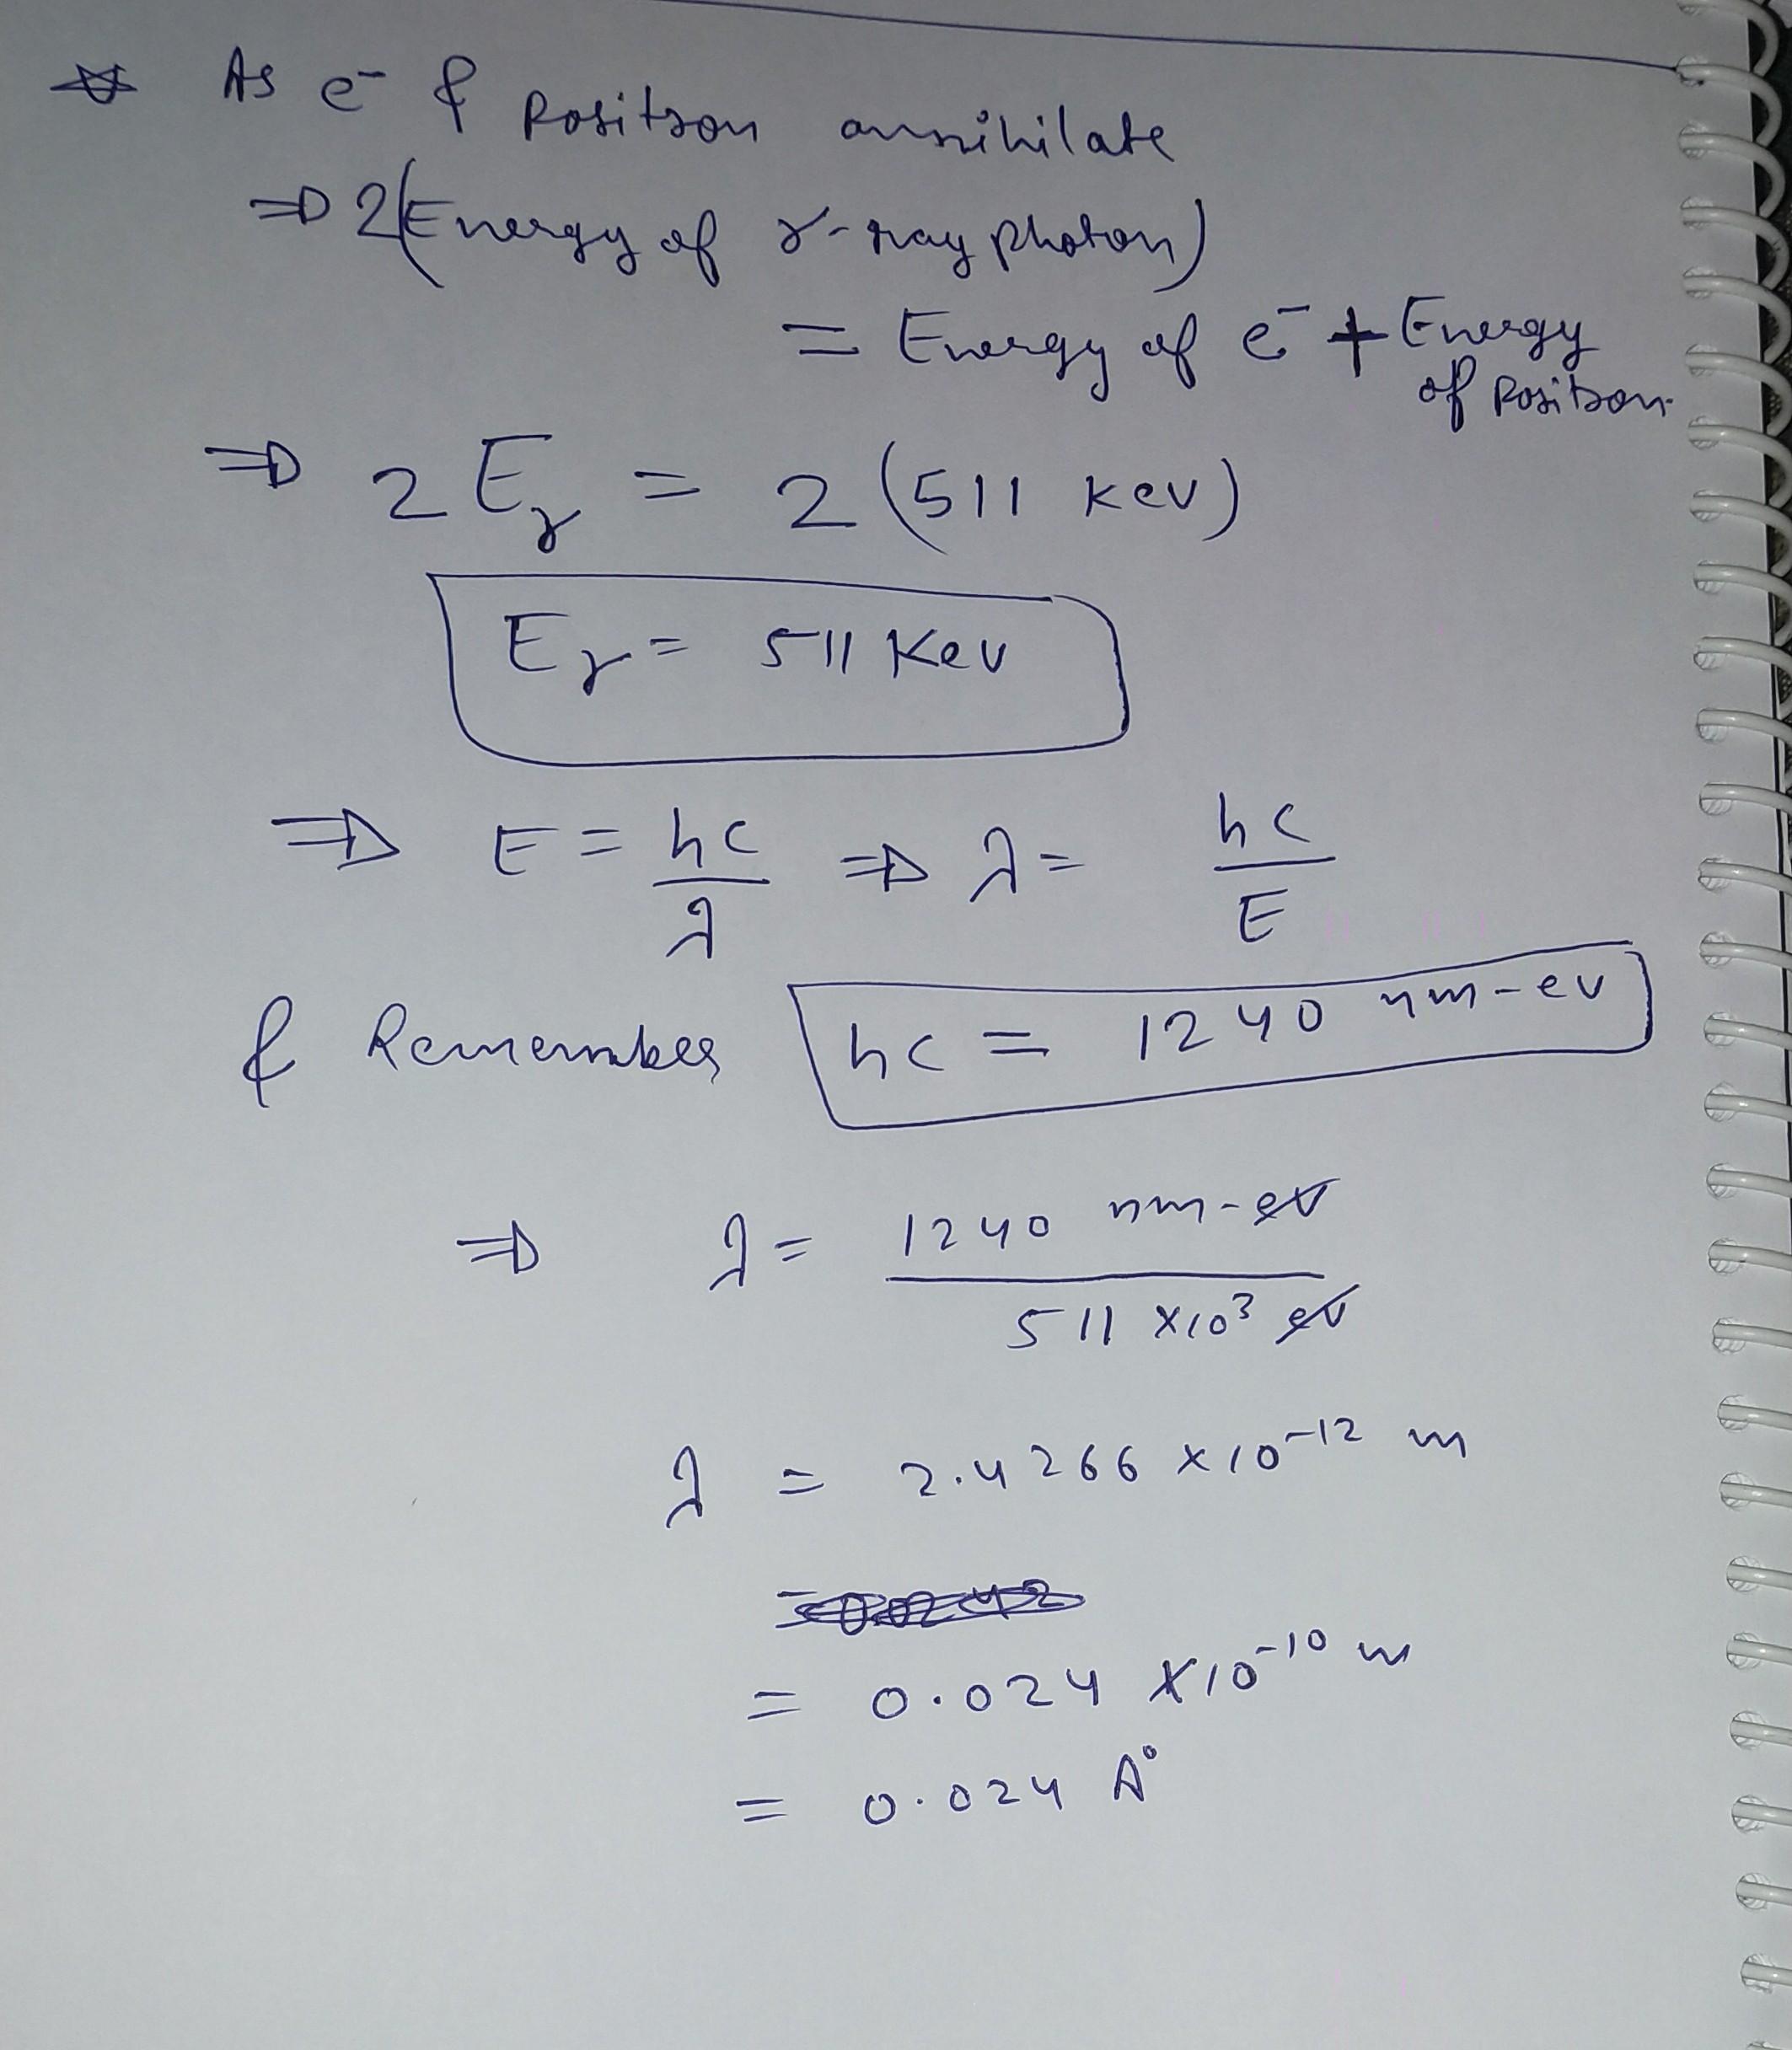 As e⁻ & Positron annihilate
⇒ 2(Energy of γ-ray photon)
= Energy of e⁻ + Energy
of Positron
⇒ 2 Eγ = 2 (511 Kev)
Eγ = 511 Kev
⇒ E = hc/λ ⇒ λ = hc/E
& Remember hc = 1240 nm-ev
⇒ λ = 1240 nm-ev / 511 ×10³ ev
λ = 2.4266 ×10⁻¹² m
= 0.024 ×10⁻¹⁰ m
= 0.024 A°